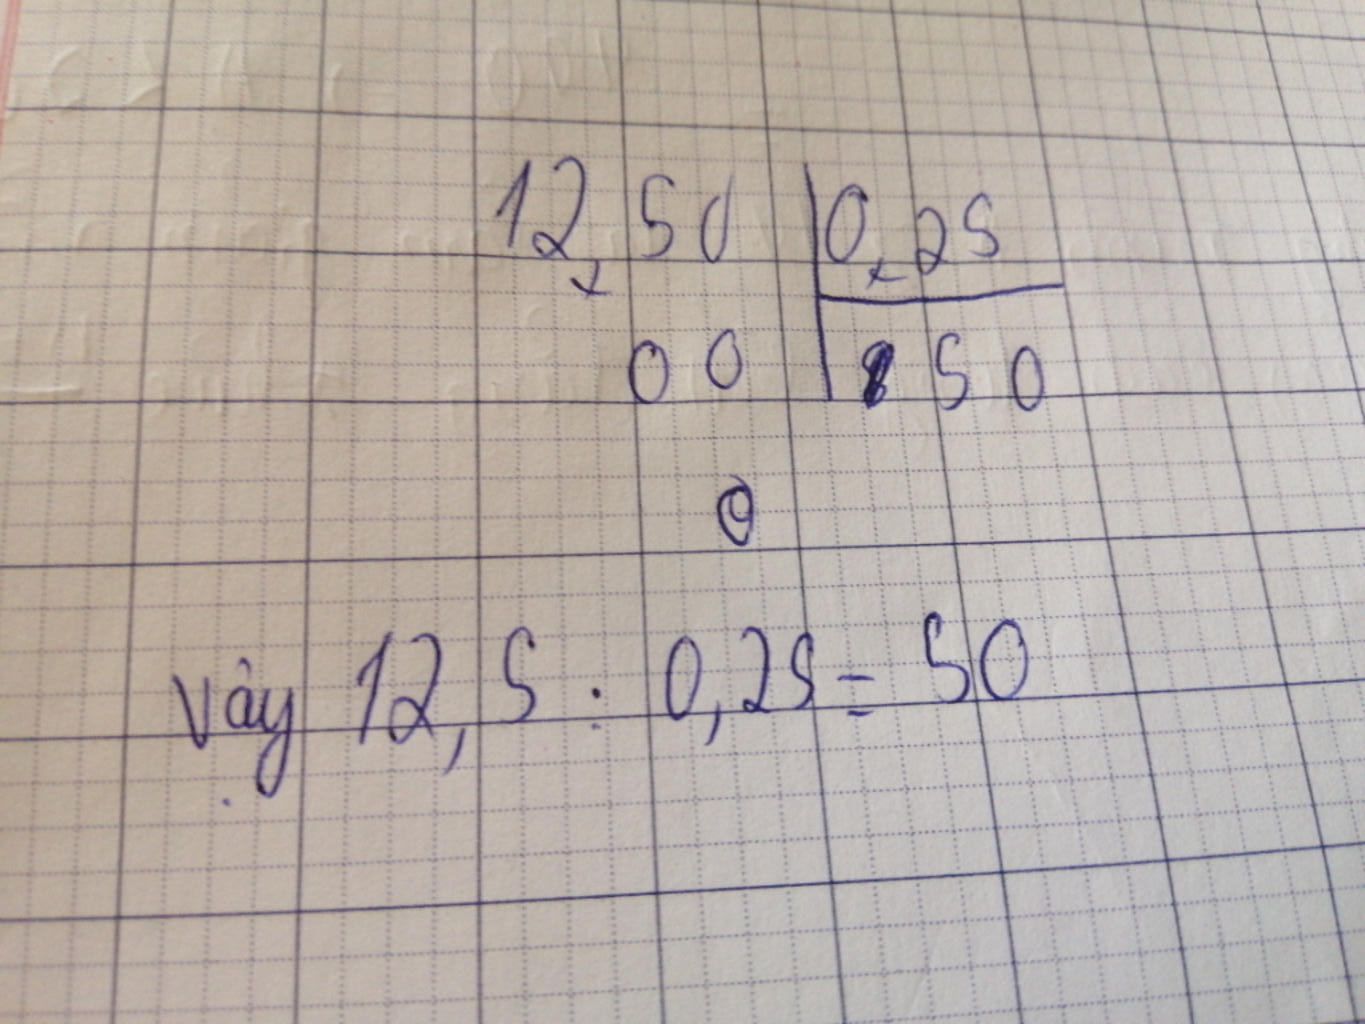 12,50 0,25
00 50
0
Vậy 12,5 : 0,25 = 50